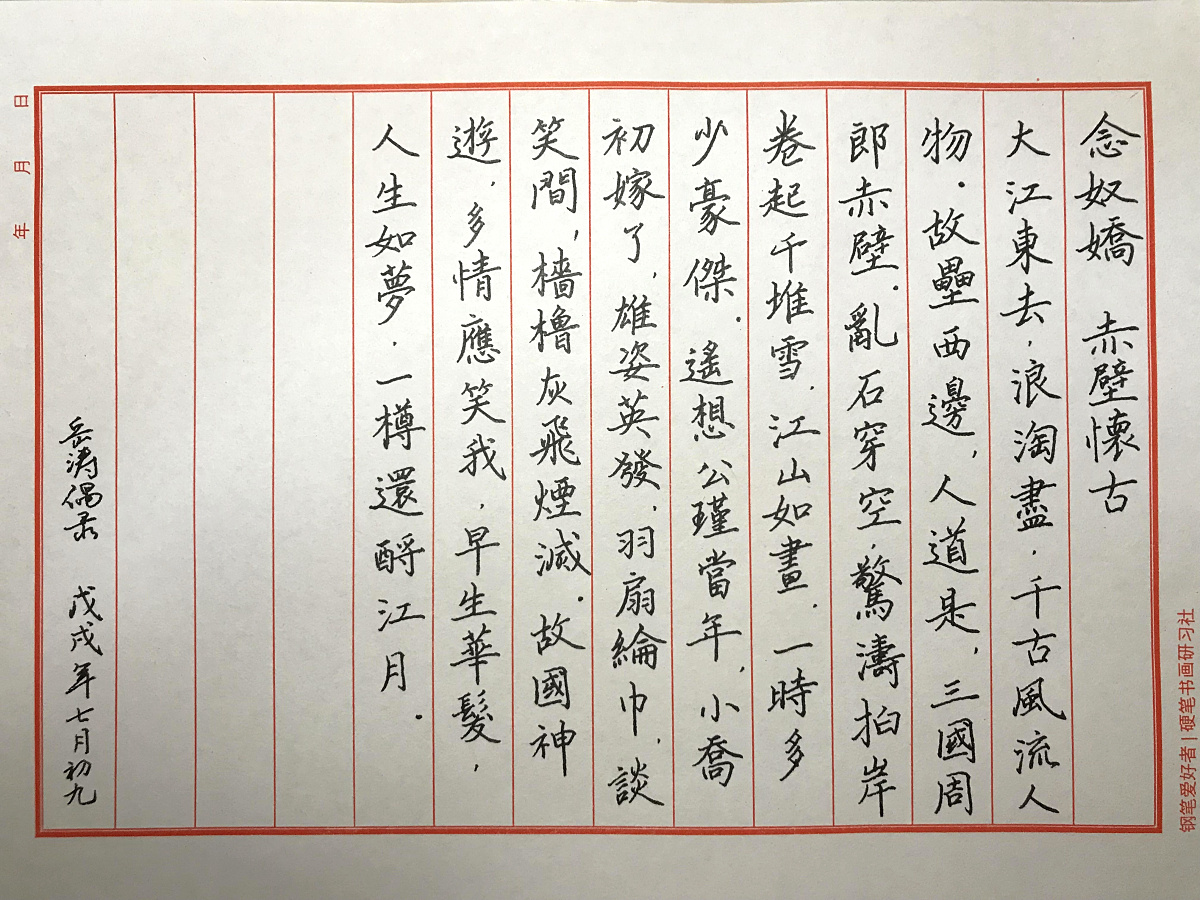 念奴嬌 赤壁懷古
大江東去，浪淘盡，千古風流人
物。故壘西邊，人道是，三國周
郎赤壁。亂石穿空，驚濤拍岸
卷起千堆雪，江山如畫，一時多
少豪傑。遙想公瑾當年，小喬
初嫁了，雄姿英發，羽扇綸巾，談
笑間，檣櫓灰飛煙滅。故國神
遊，多情應笑我，早生華髮，
人生如夢，一樽還酹江月。
岳涛偶录 戊戌年七月初九
年 月 日
钢笔爱好者|硬笔书画研习社